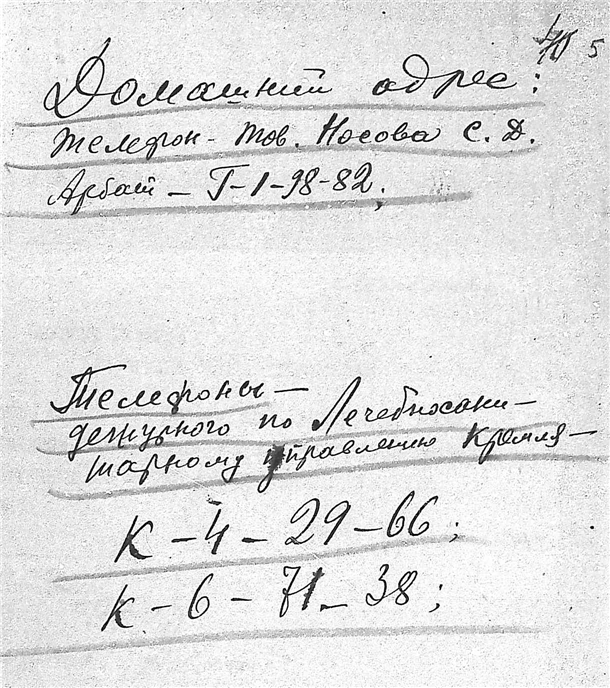 5
Домашний адрес:
телефон - тов. Носова С. Д.
Арбат — Г-1-98-82;
Телефоны —
дежурного по Лечебносани-
тарному управлению Кремля —
К-4-29-66;
К-6-71-38;